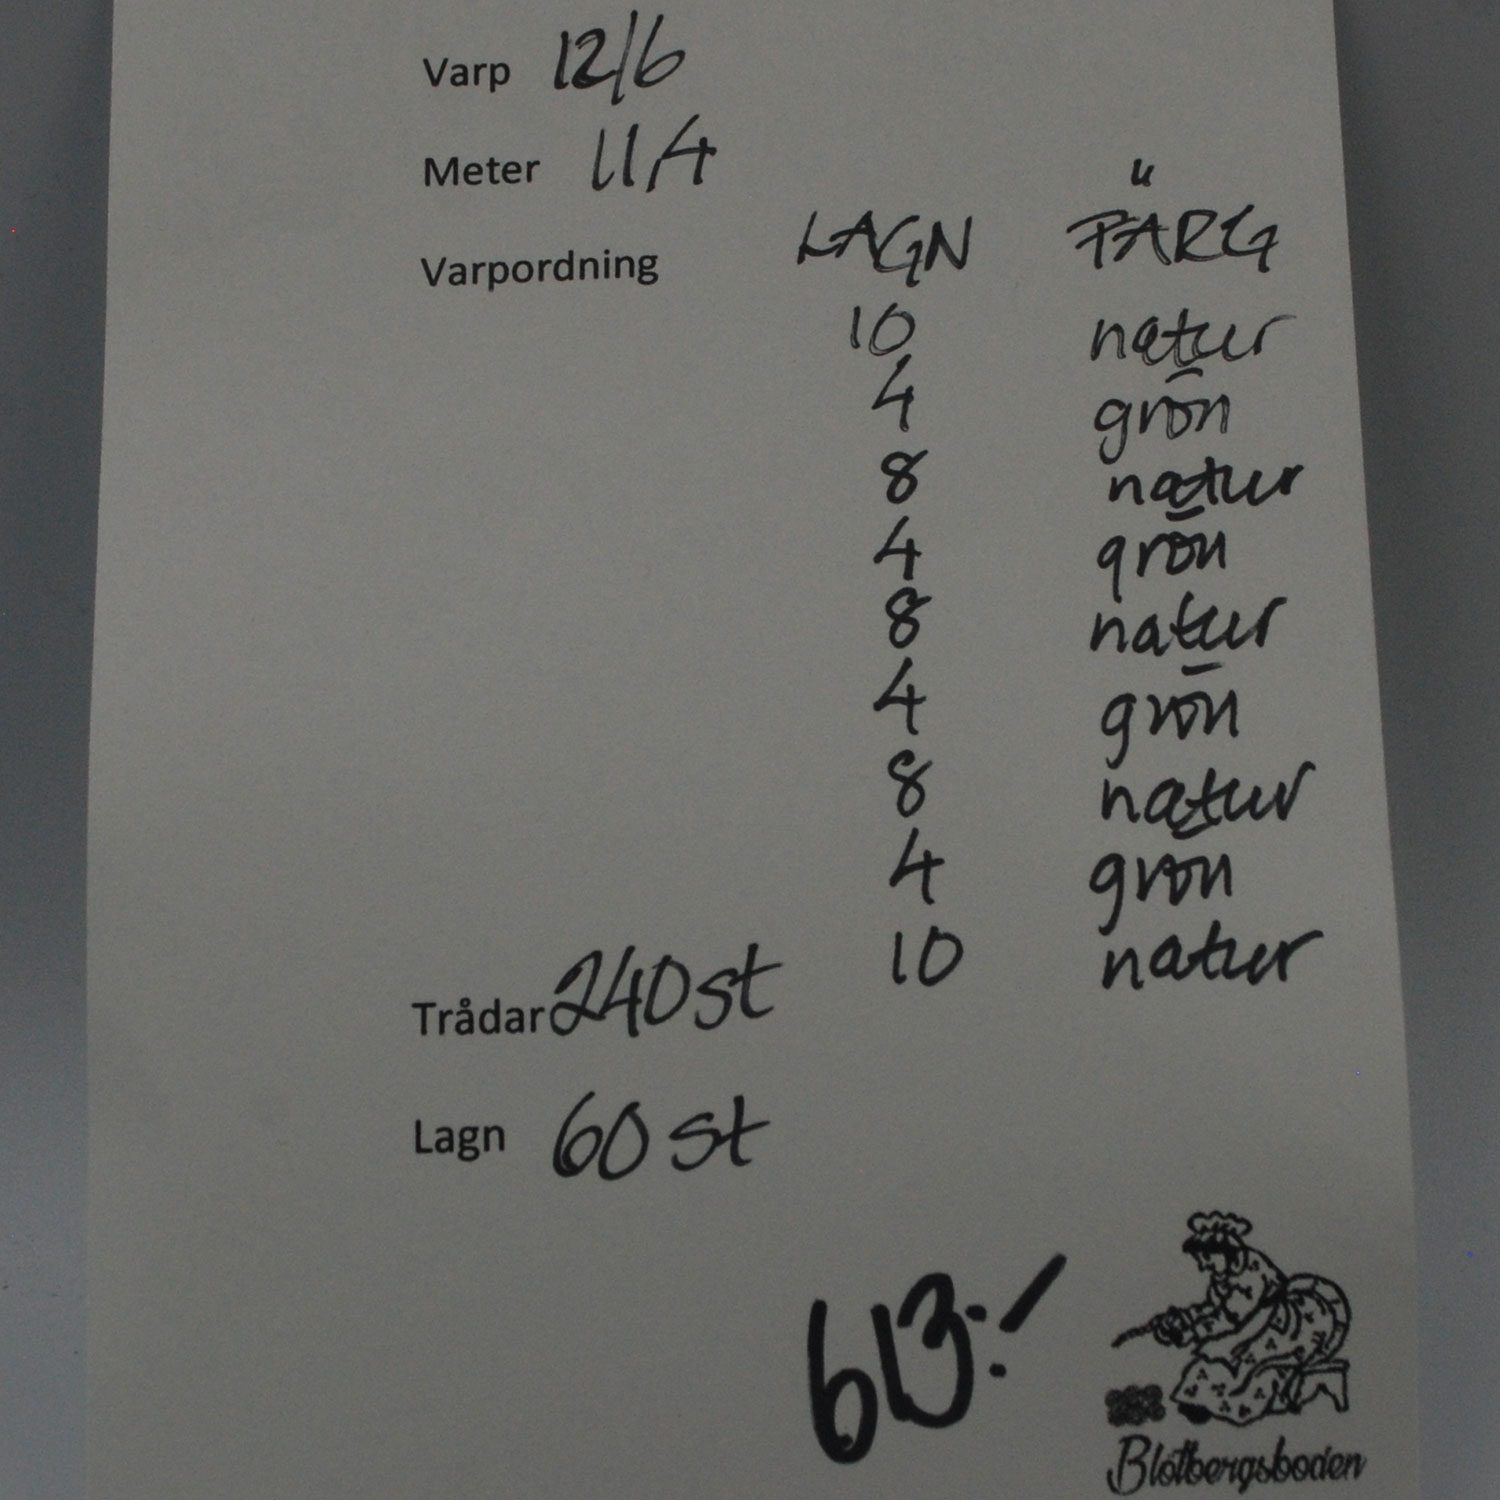 Varp 12/6
Meter 11,4
Varpordning LAGN FÄRG
10 natur
4 grön
8 natur
4 grön
8 natur
4 grön
8 natur
4 grön
10 natur
Trådar 240 st
Lagn 60 st
613:-
Blötbergsboden